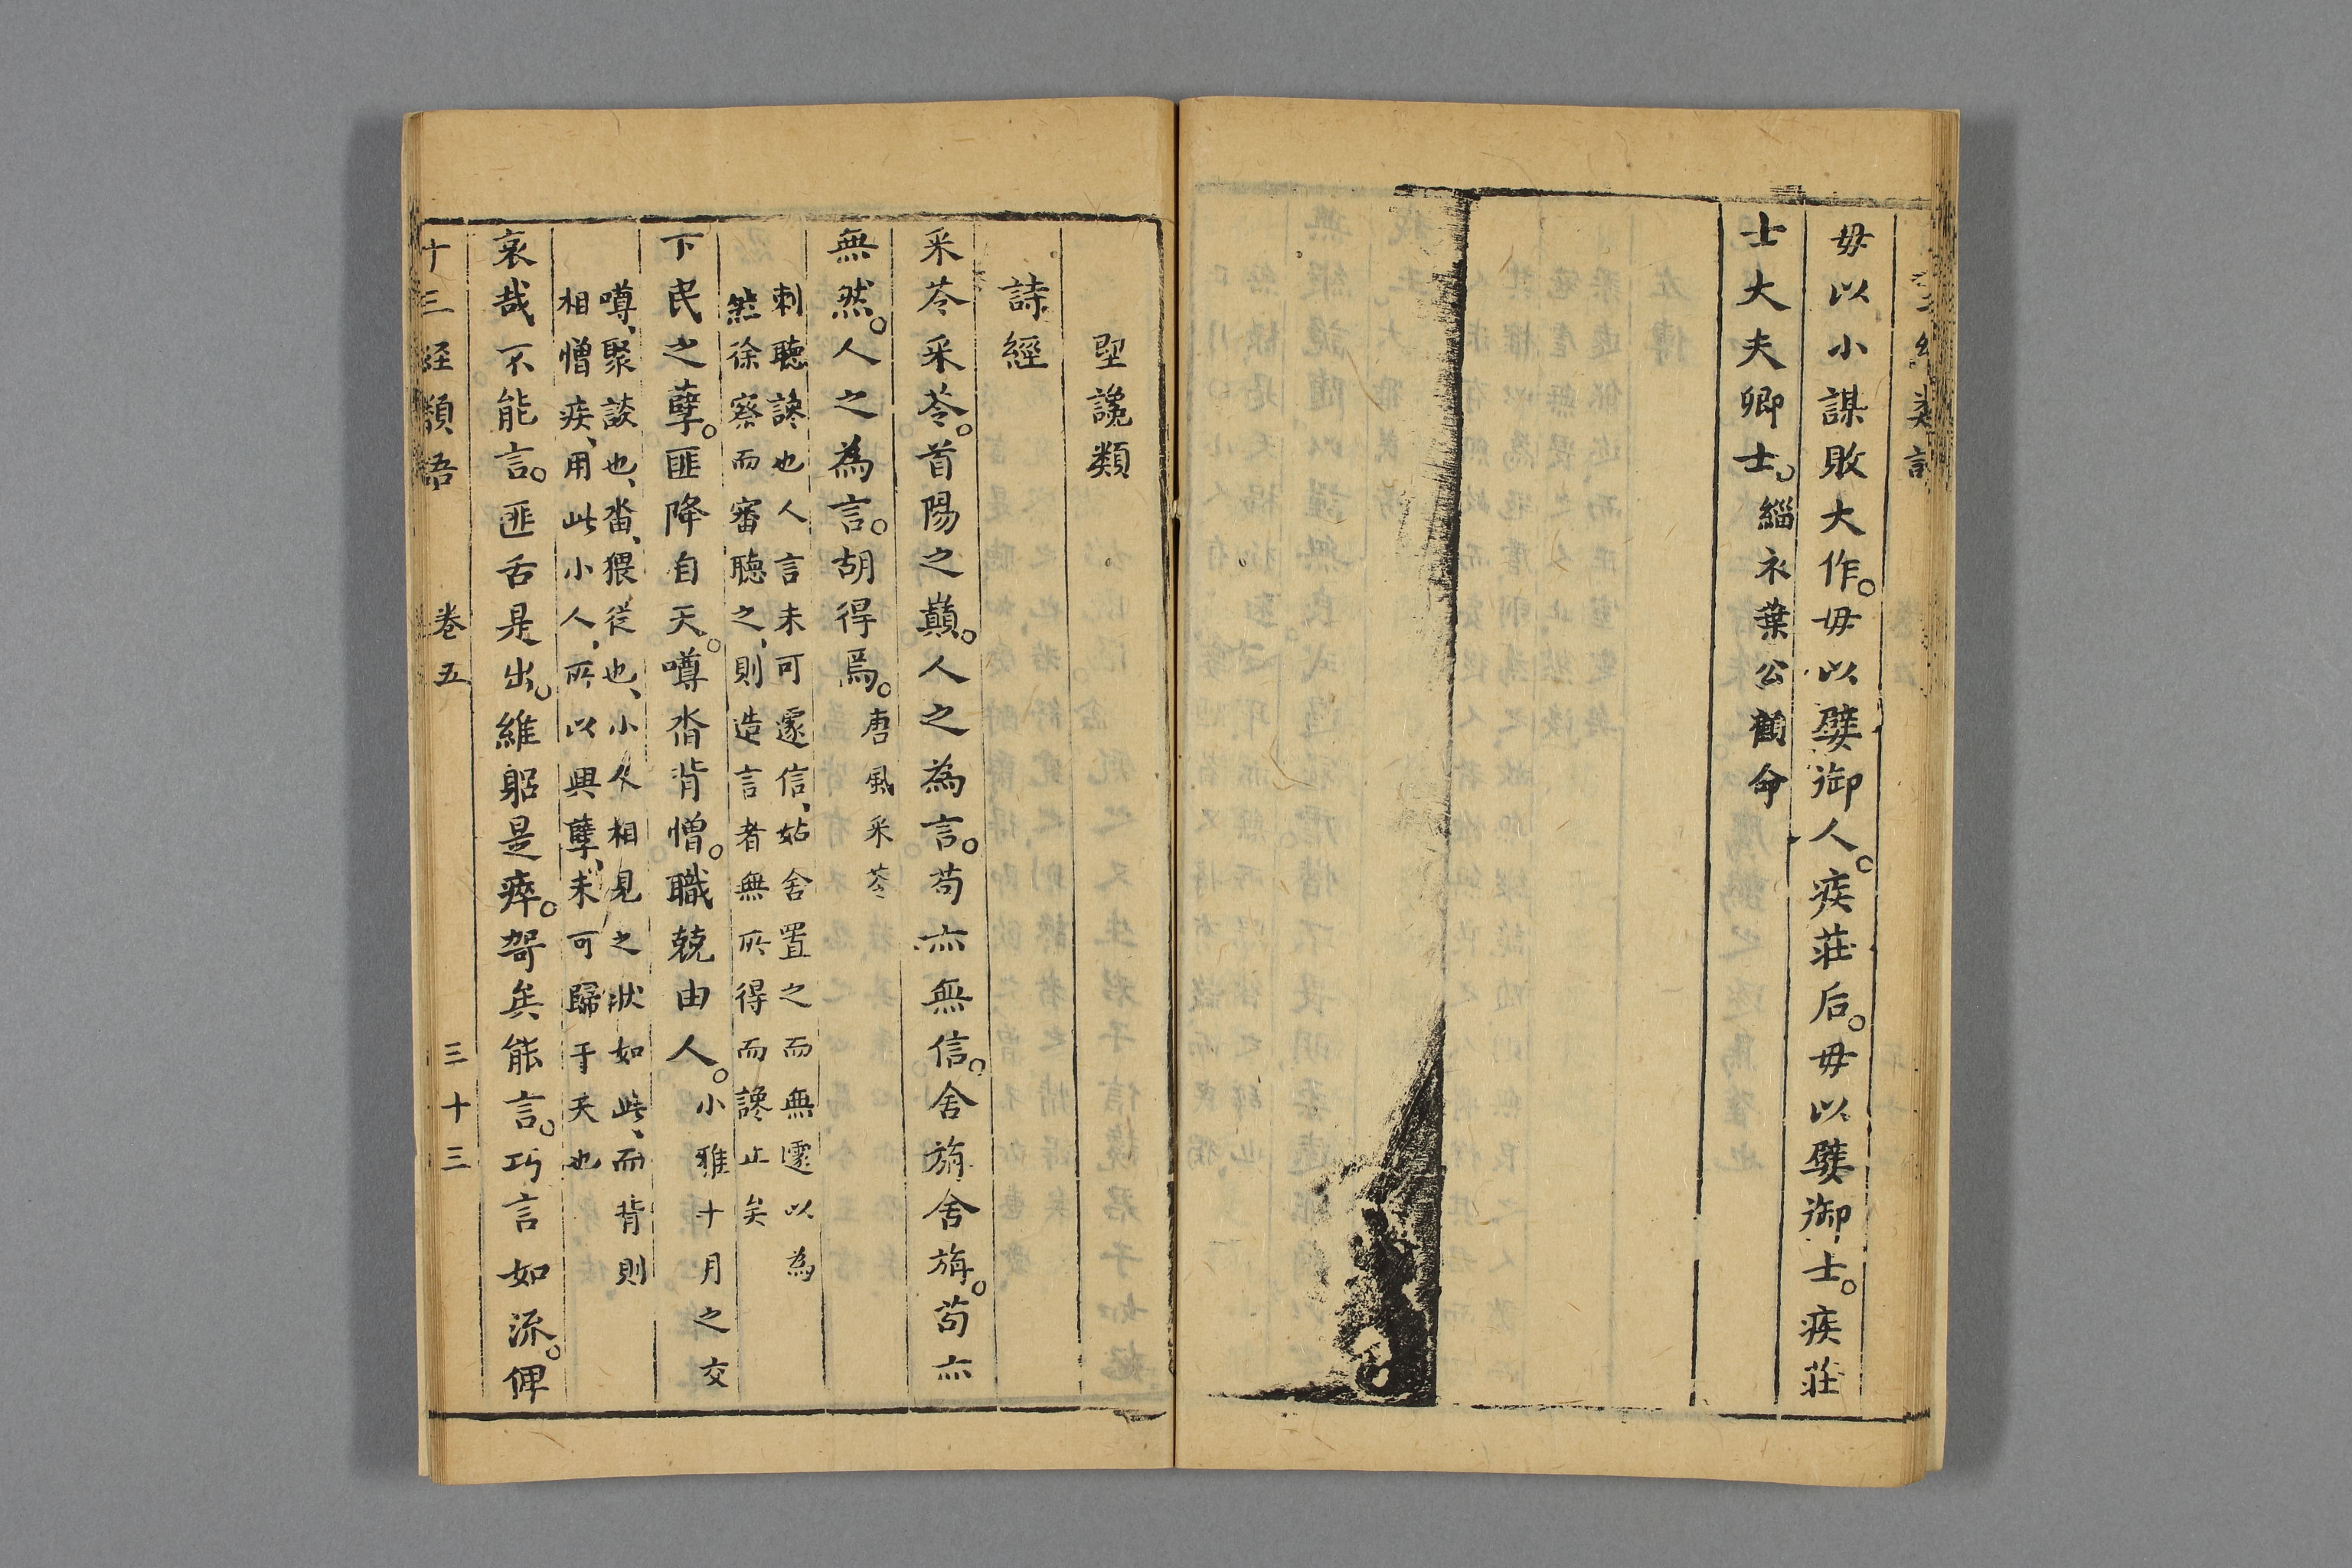 毋以小謀敗大作。毋以嬖御人。疾莊后。毋以嬖御士。疾莊
士大夫卿士。緇衣葉公顧命
堲讒類
詩經
采苓采苓。首陽之巔。人之為言。苟亦無信。舍旃舍旃。苟亦
無然。人之為言。胡得焉。唐風采苓
刺聽讒也人言未可遽信、姑舍置之而無遽以為
然徐察而審聽之、則造言者無所得而讒止矣
下民之孽。匪降自天。噂沓背憎。職兢由人。小雅十月之交
噂、聚談也、畓、猥從也、小人相見之狀如此、而背則
相憎疾、用此小人、所以興孽、未可歸于天也
哀哉不能言。匪舌是出。維躬是瘁。哿矣能言。巧言如流。俾
十三經類語 卷五 三十三